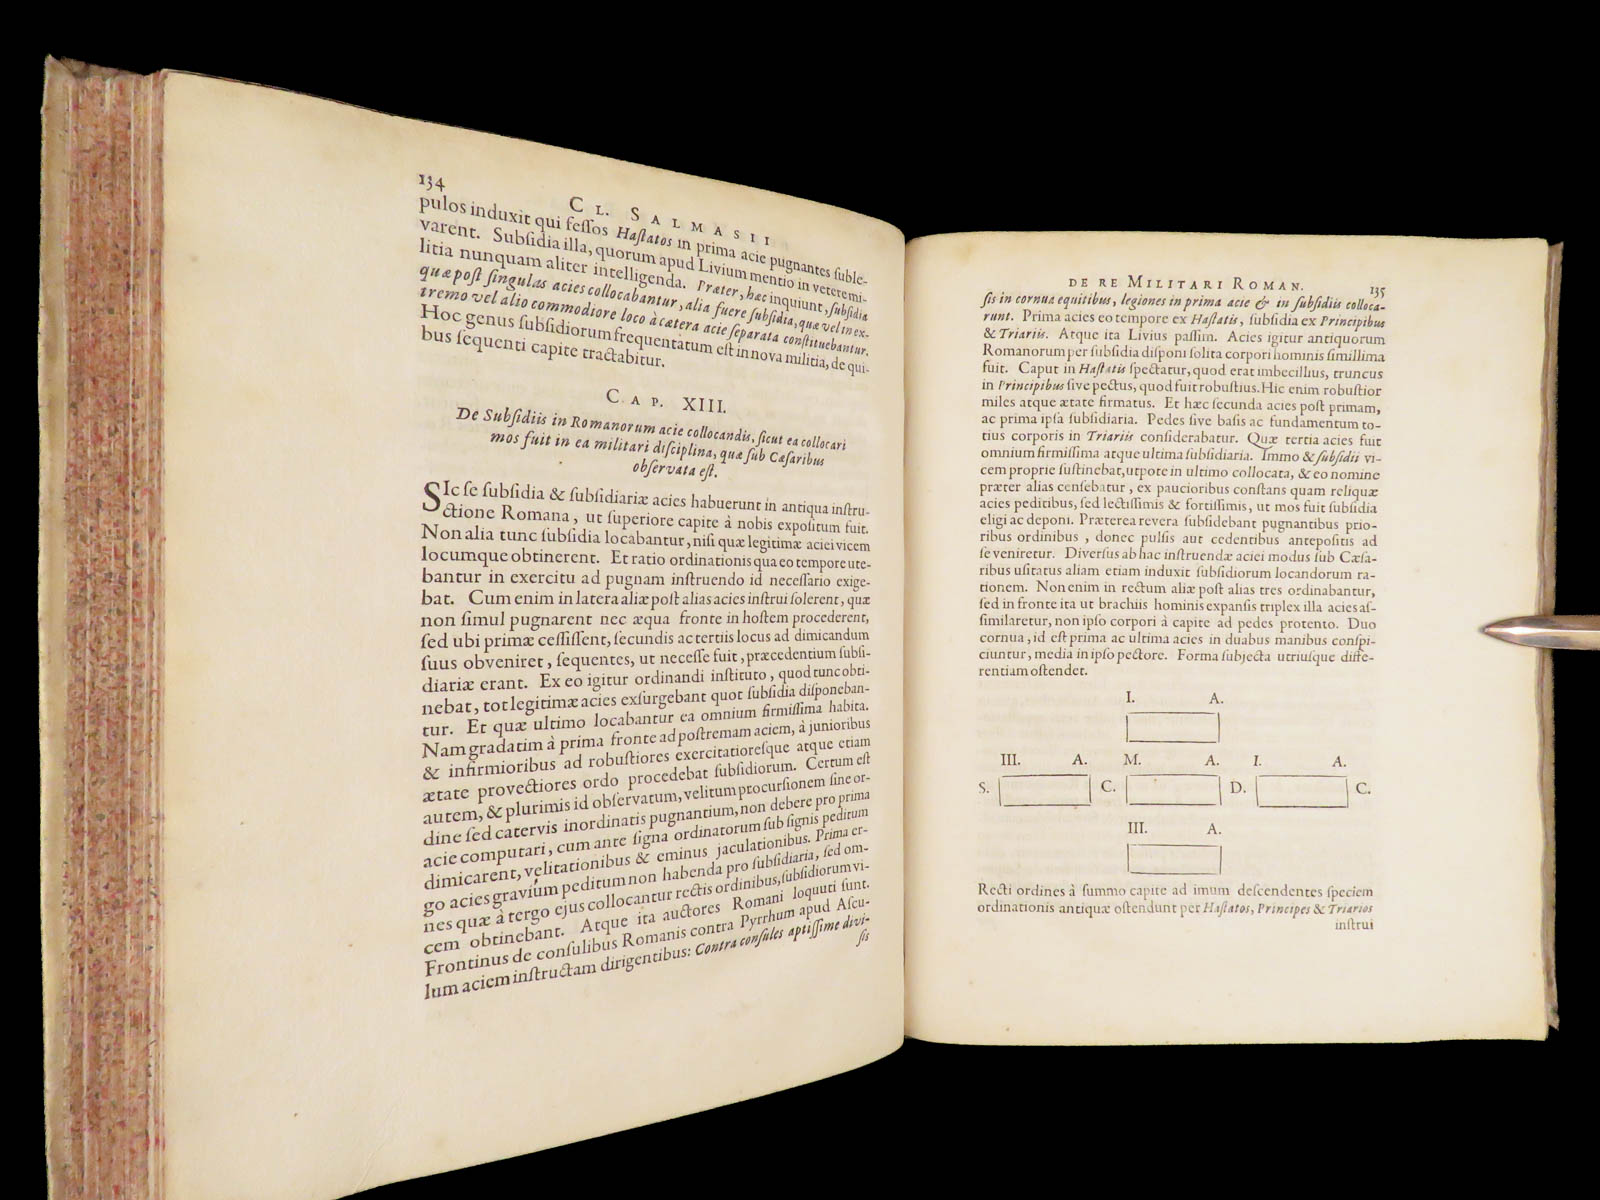 134
CL. SALMASII
pulos induxit qui feſſos Haſtatos in prima acie pugnantes ſuble-
varent. Subſidia illa, quorum apud Livium mentio in vetere mi-
litia nunquam aliter intelligenda. Præter, hæc inquiunt, ſubſidia
quæ poſt ſingulas acies collocabantur, alia fuere ſubſidia, quæ vel in ex-
tremo vel alio commodiore loco à cætera acie ſeparata conſtituebantur.
Hoc genus ſubſidiorum frequentatum eſt in nova militia, de qui-
bus ſequenti capite tractabitur.
CAP. XIII.
De Subſidiis in Romanorum acie collocandis, ſicut ea collocari
mos fuit in ea militari diſciplina, quæ ſub Cæſaribus
obſervata eſt.
SIc ſe ſubſidia & ſubſidiariæ acies habuerunt in antiqua inſtru-
ctione Romana, ut ſuperiore capite à nobis expoſitum fuit.
Non alia tunc ſubſidia locabantur, niſi quæ legitimæ aciei vicem
locumque obtinerent. Et ratio ordinationis qua eo tempore ute-
bantur in exercitu ad pugnam inſtruendo id neceſſario exige-
bat. Cum enim in latera aliæ poſt alias acies inſtrui ſolerent, quæ
non ſimul pugnarent nec æqua fronte in hoſtem procederent,
ſed ubi primæ ceſſiſſent, ſecundis ac tertiis locus ad dimicandum
ſuus obveniret, ſequentes, ut neceſſe fuit, præcedentium ſubſi-
diariæ erant. Ex eo igitur ordinandi inſtituto, quod tunc obti-
nebat, tot legitimæ acies exſurgebant quot ſubſidia diſponeban-
tur. Et quæ ultimo locabantur ea omnium firmiſſima habita.
Nam gradatim à prima fronte ad poſtremam aciem, à junioribus
& infirmioribus ad robuſtiores exercitatioreſque atque etiam
ætate provectiores ordo procedebat ſubſidiorum. Certum eſt
autem, & plurimis id obſervatum, velitum procurſionem ſine or-
dine ſed catervis inordinatis pugnantium, non debere pro prima
acie computari, cum ante ſigna ordinatorum ſub ſignis peditum
dimicarent, velitationibus & eminus jaculationibus. Prima er-
go acies gravium peditum non habenda pro ſubſidiaria, ſed om-
nes quæ à tergo ejus collocantur rectis ordinibus, ſubſidiorum vi-
cem obtinebant. Atque ita auctores Romani loquuti ſunt.
Frontinus de conſulibus Romanis contra Pyrrhum apud Aſcu-
lum aciem inſtructam dirigentibus: Contra conſules aptiſſime divi-
ſis
DE RE MILITARI ROMAN.
135
ſis in cornua equitibus, legiones in prima acie & in ſubſidiis colloca-
runt. Prima acies eo tempore ex Haſtatis, ſubſidia ex Principibus
& Triariis. Atque ita Livius paſſim. Acies igitur antiquorum
Romanorum per ſubſidia diſponi ſolita corpori hominis ſimillima
fuit. Caput in Haſtatis ſpectatur, quod erat imbecillius, truncus
in Principibus ſive pectus, quod fuit robuſtius. Hic enim robuſtior
miles atque ætate firmatus. Et hæc ſecunda acies poſt primam,
ac prima ipſa ſubſidiaria. Pedes ſive baſis ac fundamentum to-
tius corporis in Triariis conſiderabatur. Quæ tertia acies fuit
omnium firmiſſima atque ultima ſubſidiaria. Immo & ſubſidii vi-
cem proprie ſuſtinebat, utpote in ultimo collocata, & eo nomine
præter alias cenſebatur, ex paucioribus conſtans quam reliquæ
acies peditibus, ſed lectiſſimis & fortiſſimis, ut mos fuit ſubſidia
eligi ac deponi. Præterea revera ſubſidebant pugnantibus prio-
ribus ordinibus, donec pulſis aut cedentibus antepoſitis ad
ſe veniretur. Diverſus ab hac inſtruendæ aciei modus ſub Cæſa-
ribus uſitatus aliam etiam induxit ſubſidiorum locandorum ra-
tionem. Non enim in rectum aliæ poſt alias tres ordinabantur,
ſed in fronte ita ut brachiis hominis expanſis triplex illa acies aſ-
ſimilaretur, non ipſo corpori à capite ad pedes protento. Duo
cornua, id eſt prima ac ultima acies in duabus manibus conſpi-
ciuntur, media in ipſo pectore. Forma ſubjecta utriuſque diffe-
rentiam oſtendet.
I. A.
III. A. M. A. I. A.
S. C. D. C.
III. A.
Recti ordines à ſummo capite ad imum deſcendentes ſpeciem
ordinationis antiquæ oſtendunt per Haſtatos, Principes & Triarios
inſtrui